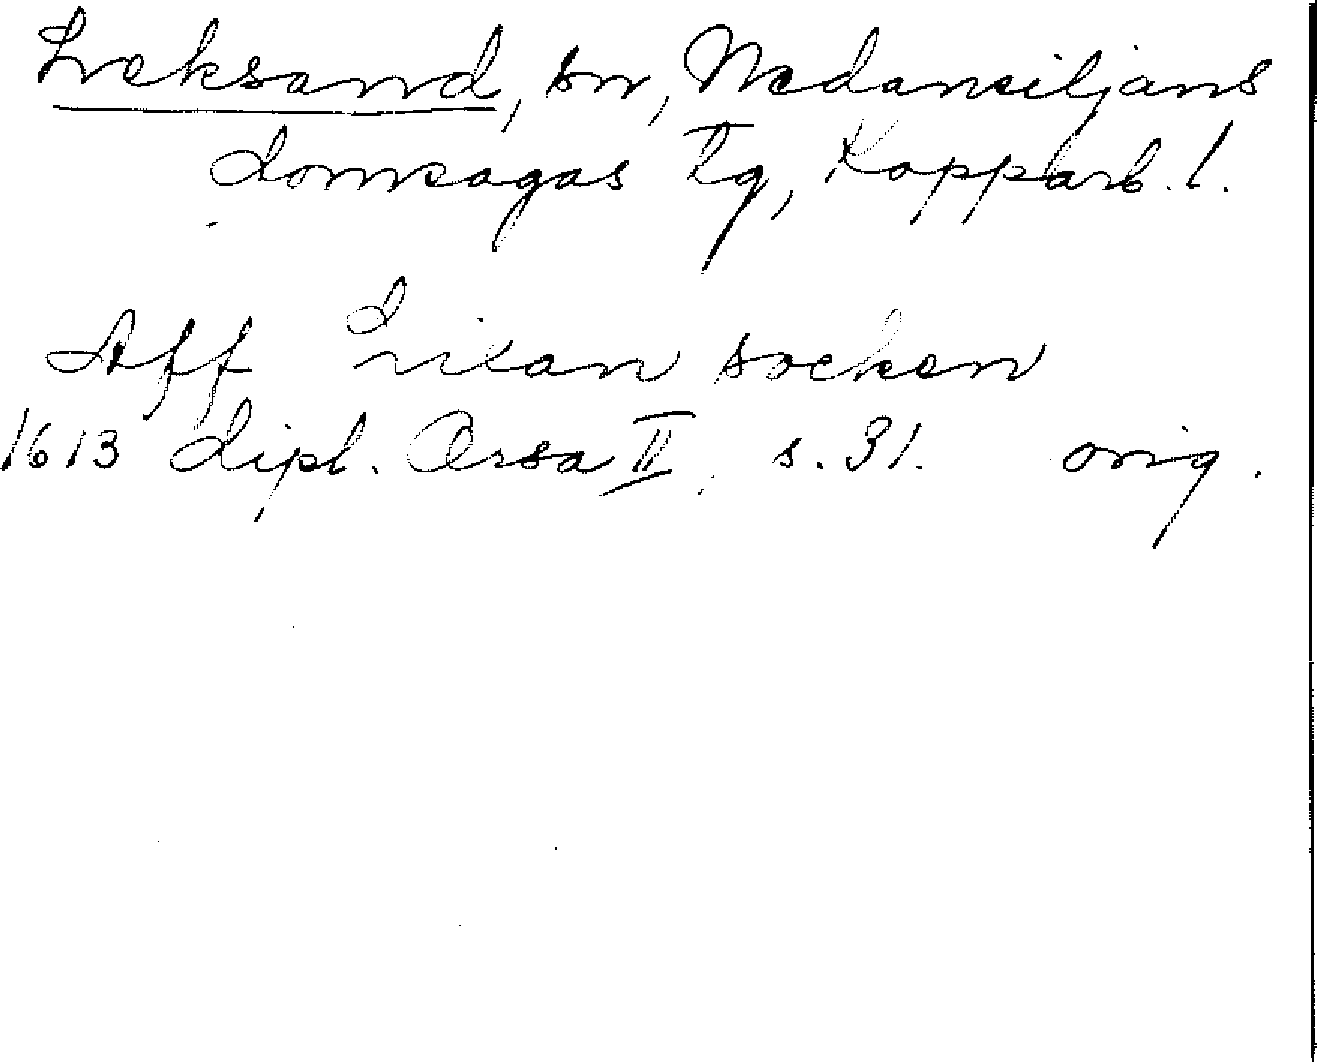 Leksand, sn, Nedansiljans
domsagas tg, Kopparb. l.
Aff Lixan socken
1613 dipl. Orsa II, s. 31. orig.